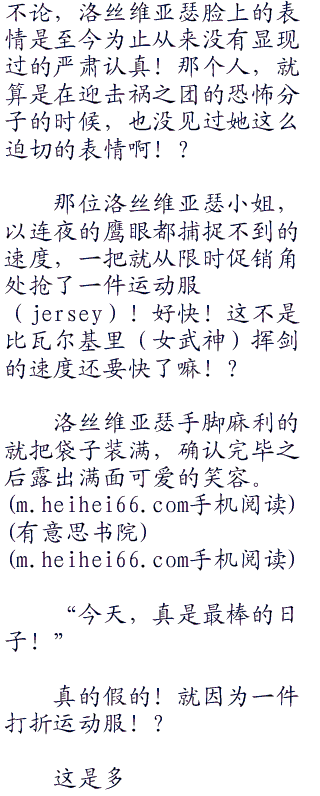 不论，洛丝维亚瑟脸上的表
情是至今为止从来没有显现
过的严肃认真！那个人，就
算是在迎击祸之团的恐怖分
子的时候，也没见过她这么
迫切的表情啊！？
那位洛丝维亚瑟小姐，
以连夜的鹰眼都捕捉不到的
速度，一把就从限时促销角
处抢了一件运动服
（jersey）！好快！这不是
比瓦尔基里（女武神）挥剑
的速度还要快了嘛！？
洛丝维亚瑟手脚麻利的
就把袋子装满，确认完毕之
后露出满面可爱的笑容。
(m.heihei66.com手机阅读)
(有意思书院)
(m.heihei66.com手机阅读)
“今天，真是最棒的日
子！”
真的假的！就因为一件
打折运动服！？
这是多